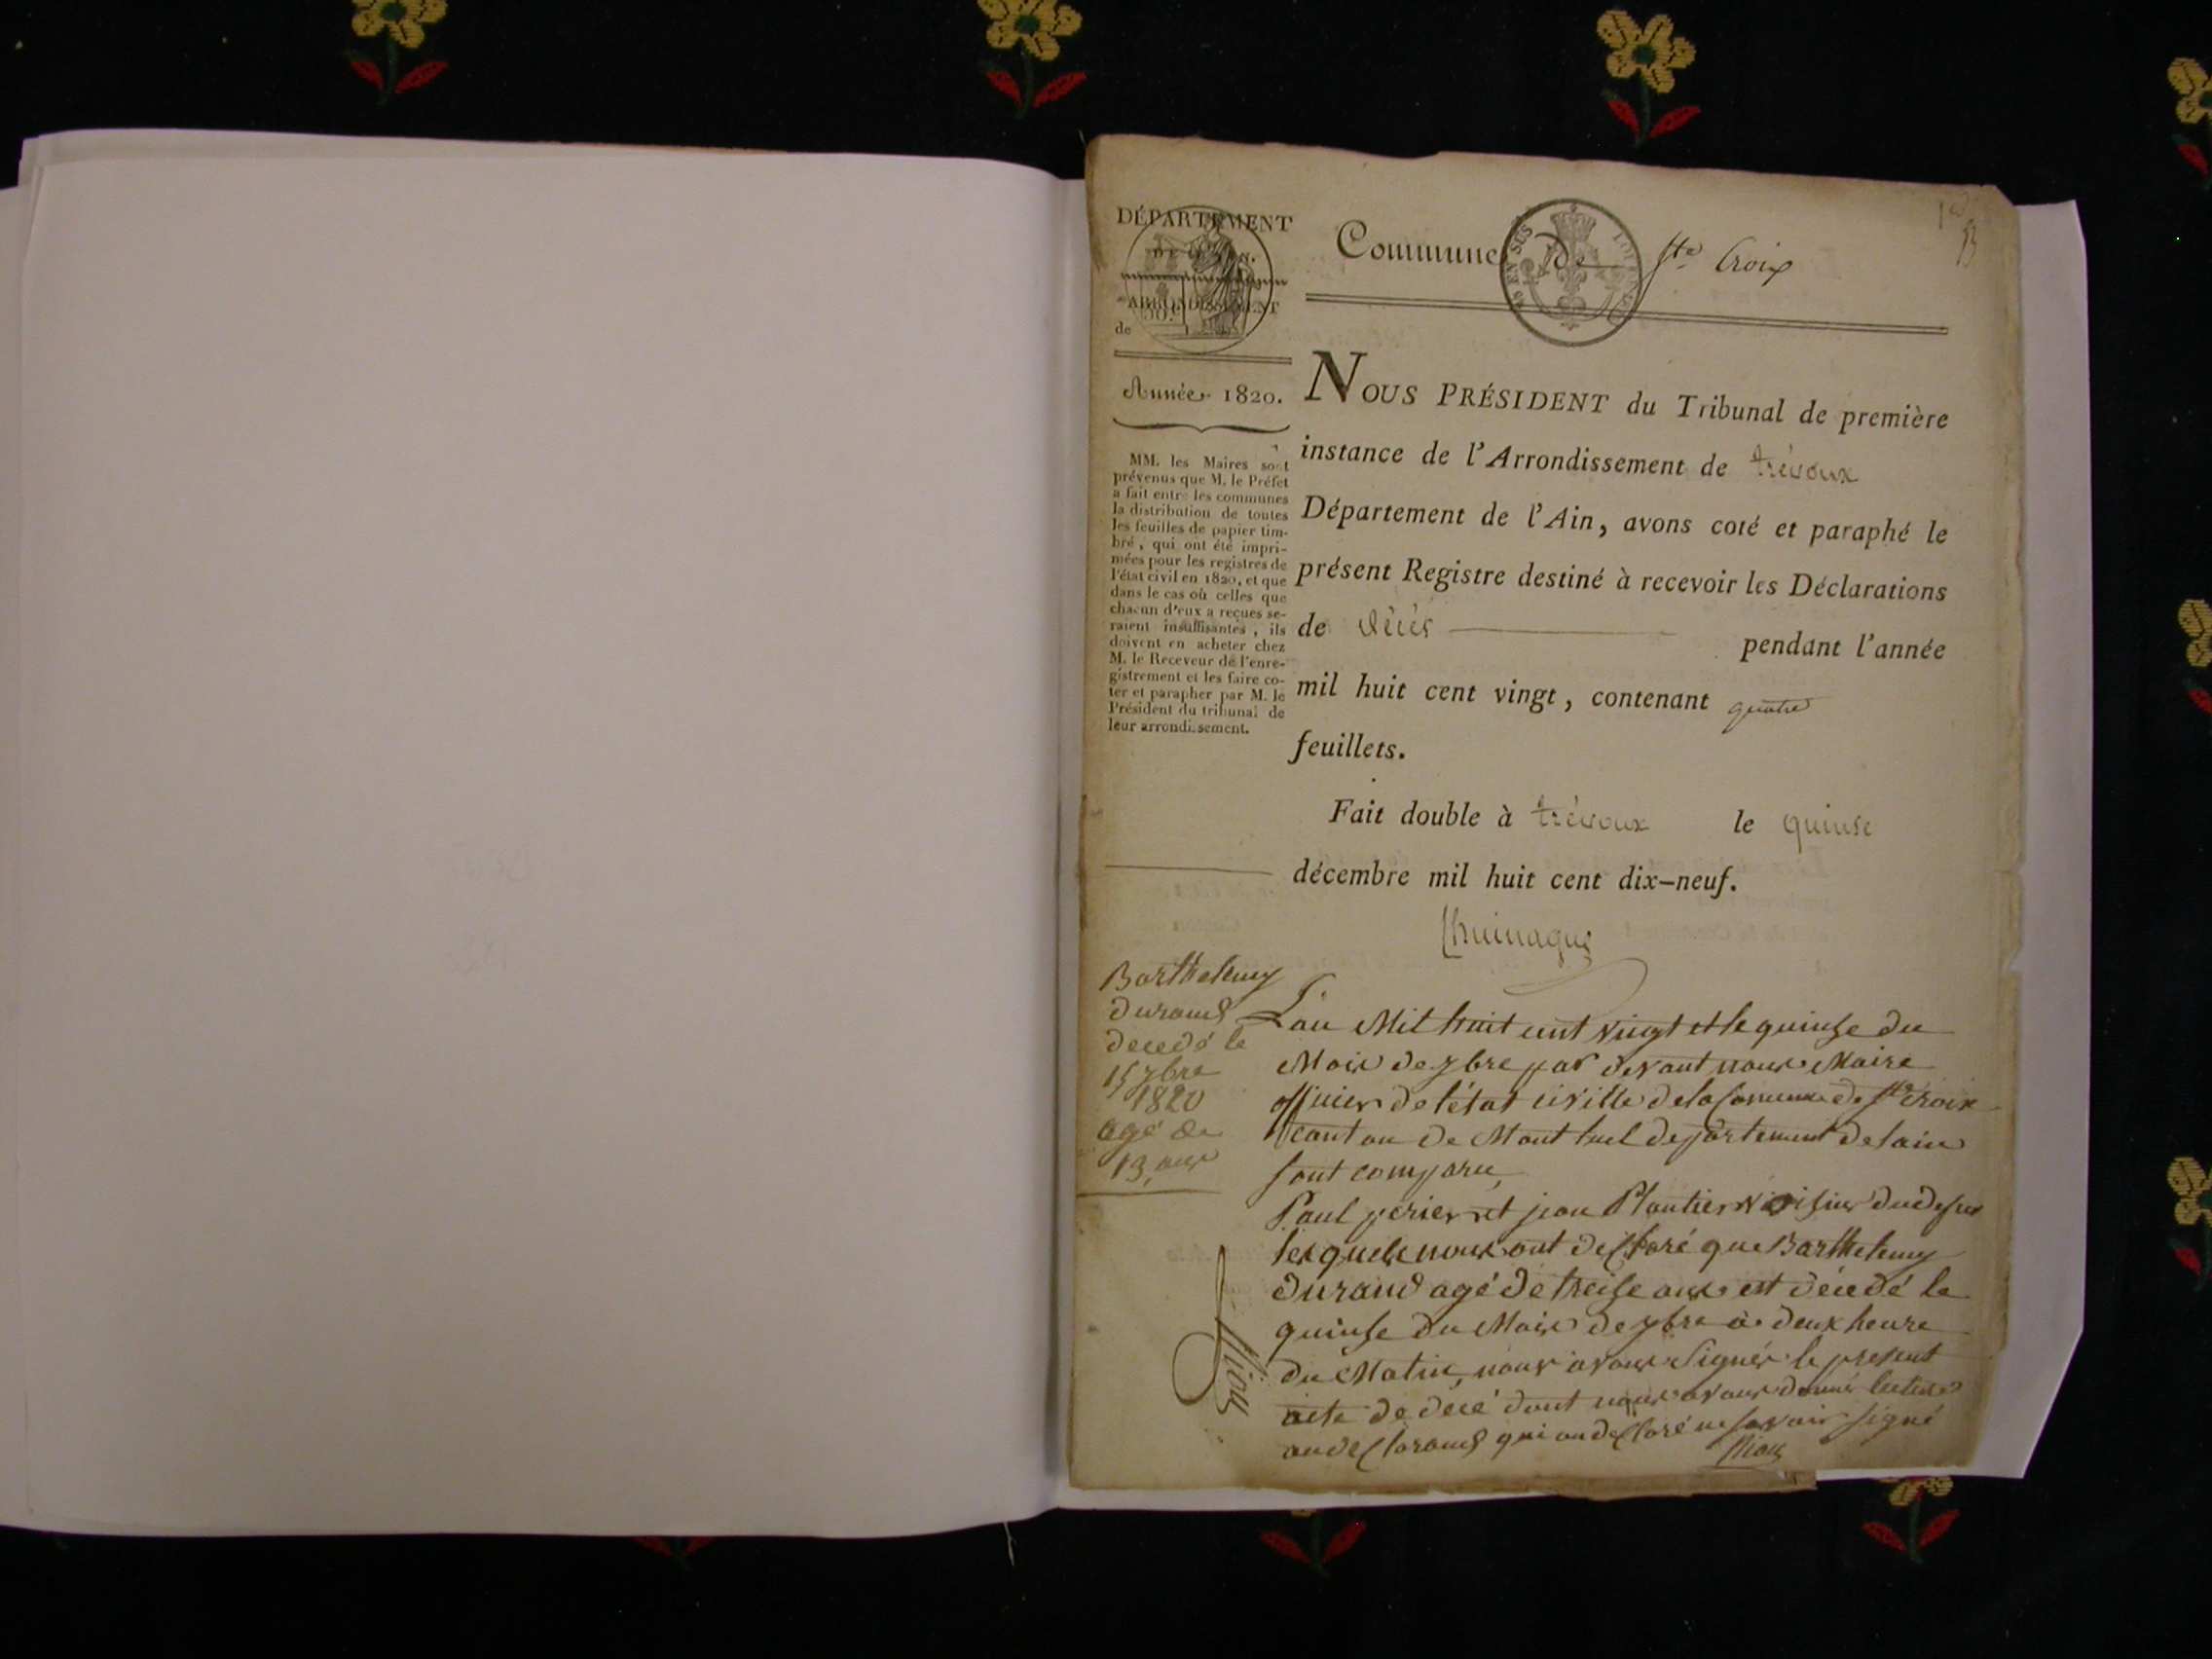 DÉPARTEMENT
DE L'AIN.
ARRONDISSEMENT
de
Commune de Ste Croix
Année 1820.
MM. les Maires sont
prévenus que M. le Préfet
a fait entre les communes
la distribution de toutes
les feuilles de papier tim-
bré, qui ont été impri-
mées pour les registres de
l'état civil en 1820, et que
dans le cas où celles que
chacun d'eux a reçues se-
raient insuffisantes, ils
doivent en acheter chez
M. le Receveur de l'enre-
gistrement et les faire co-
ter et parapher par M. le
Président du tribunal de
leur arrondissement.
NOUS PRÉSIDENT du Tribunal de première
instance de l'Arrondissement de trévoux
Département de l'Ain, avons coté et paraphé le
présent Registre destiné à recevoir les Déclarations
de décés pendant l'année
mil huit cent vingt, contenant quatre
feuillets.
Fait double à trévoux le quinse
décembre mil huit cent dix-neuf.
Barthelemy
durand
decedé le
15 7bre
1820
agé de
13, ans
L'an Mil huit cent vingt et le quinse du
Mois de 7bre par devant nous Maire
officier de l'état civille de la Comune de Ste Croix
canton de Mont luel departement de lain
sont comparu,
Paul perier et jean Plantier voisins du desus
lesquels nous ont desclaré que Barthelemy
durand agé de treise ans est décedé le
quinse du Mois de 7bre à deux heure
du Matin, nous avons Signés le present
acte de décé dont nous avons donnés lecture
au desclarand qui on desclaré ne savoir signé